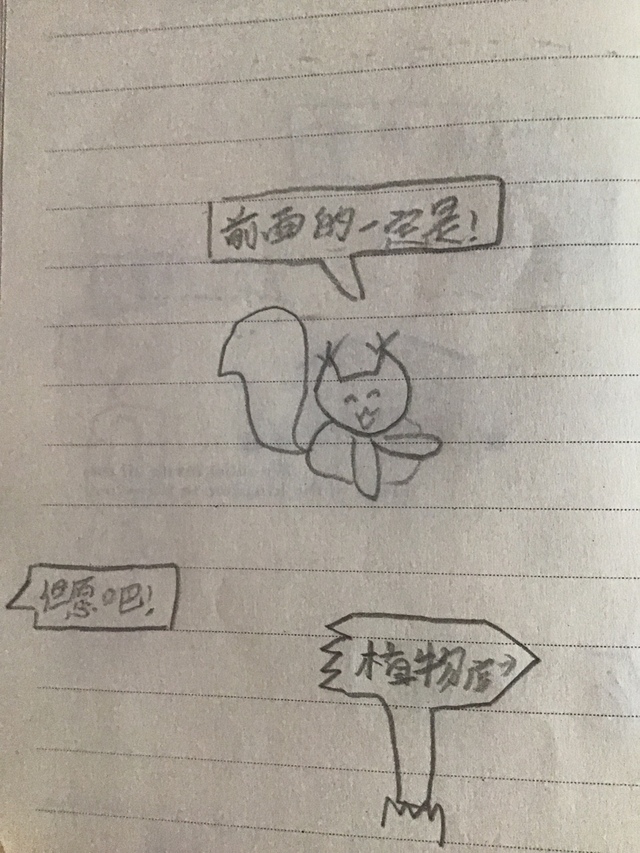 前面的一定是！
但愿吧！
植物店